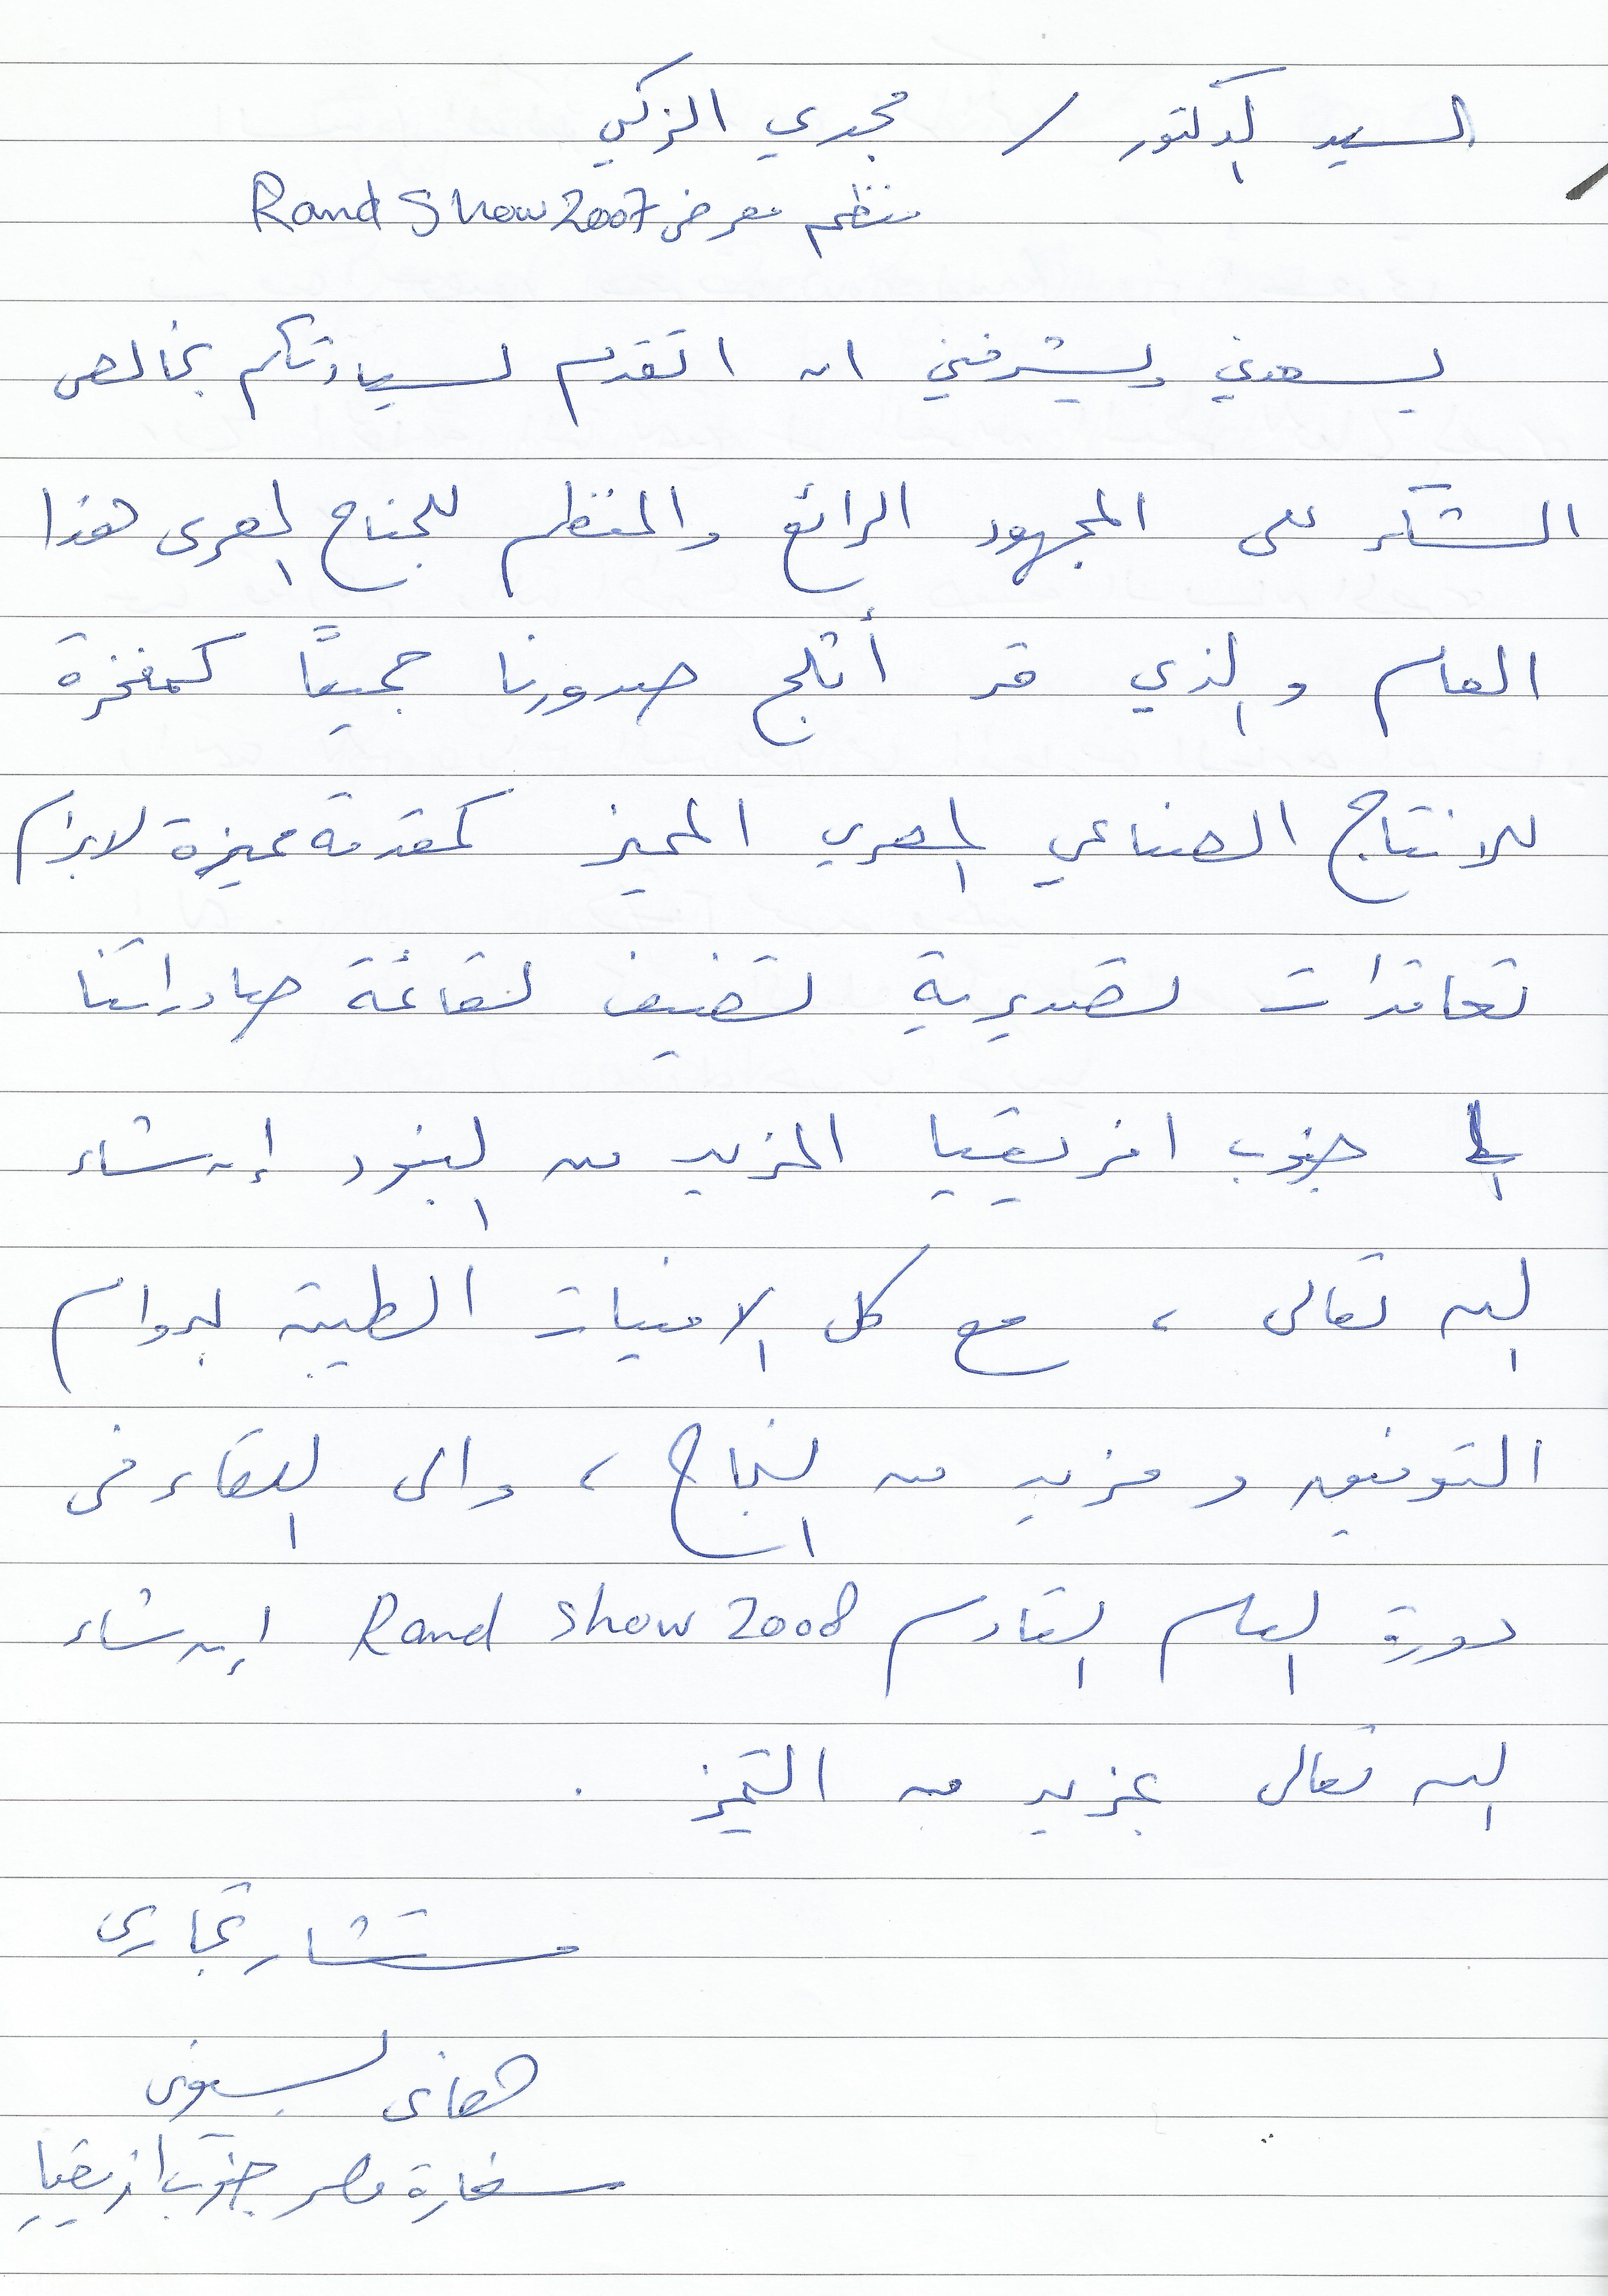 السيد الدكتور / مجدي الزكي
منظم معرض Rand Show 2007
يسعدني ويشرفني ان اتقدم لسيادتكم بخالص
الشكر على المجهود الرائع والمنظم للجناح المصرى هذا
العام والذي قد أثلج صدورنا جميعًا كمفخرة
للانتاج الصناعي المصري المميز كمقدمة مميزة لابرام
تعاقدات تصديرية تضيف لقائمة صادراتنا
الى جنوب افريقيا المزيد من البنود إن شاء
الله تعالى ، مع كل الامنيات الطيبة بدوام
التوفيق ومزيد من النجاح ، والى اللقاء فى
دورة العام القادم Rand Show 2008 إن شاء
الله تعالى بمزيد من التميز .
مستشار تجارى
هانى
سفارة مصر جنوب افريقيا